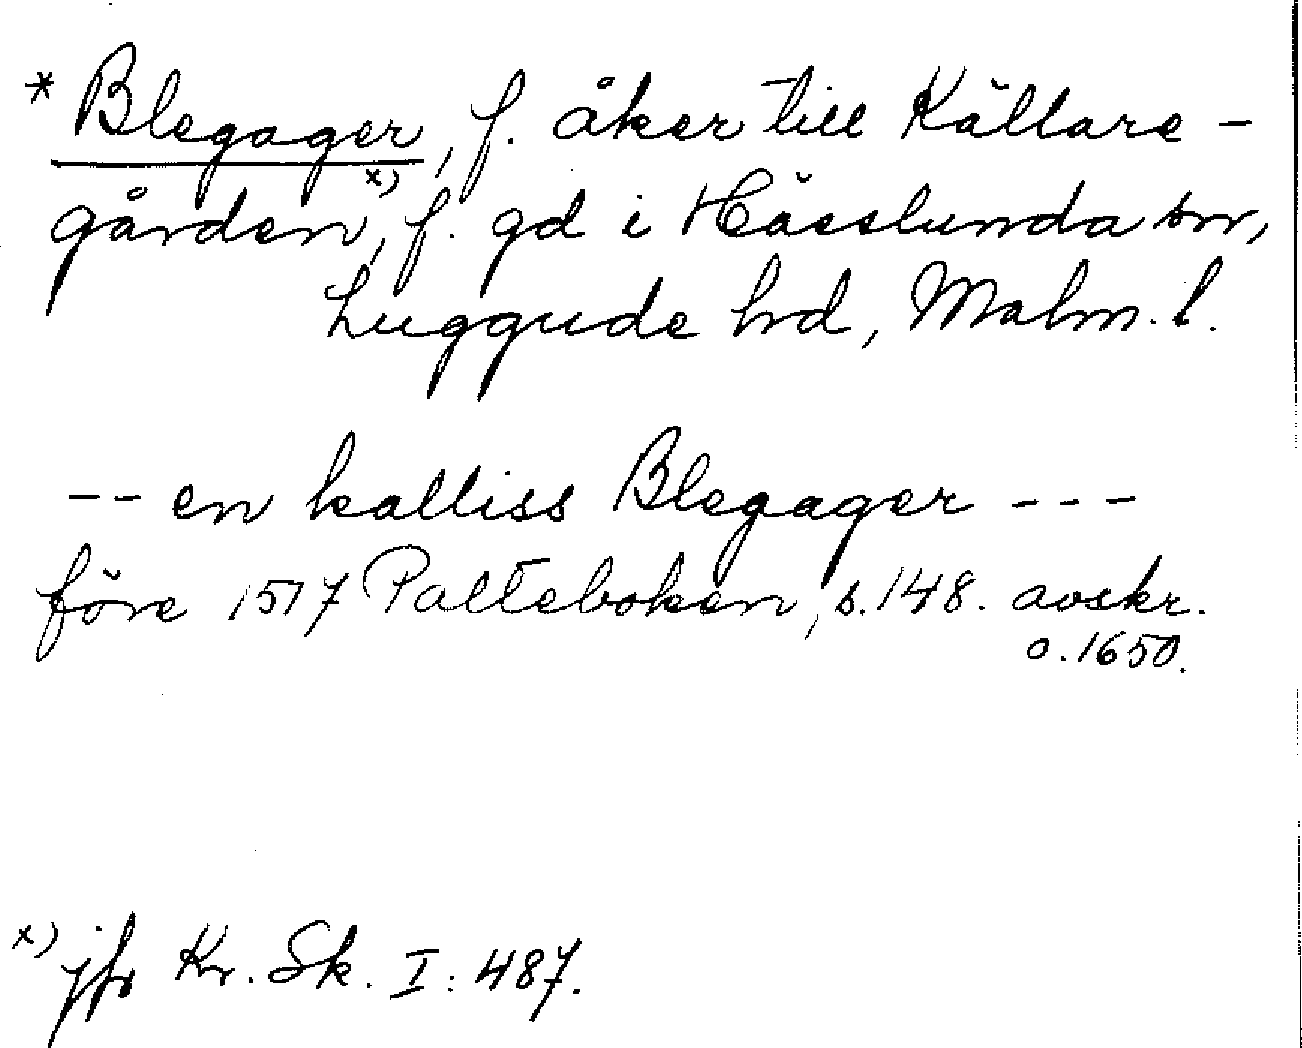 * Blegager, f. åker till Källare-
gården x), f. gd i Hässlunda sn,
Luggude hd, Malm. l.
-- en kalliss Blegager ---
före 1517 Palteboken, s. 148. avskr.
o. 1650.
x) jfr Kr. Sk. I: 487.